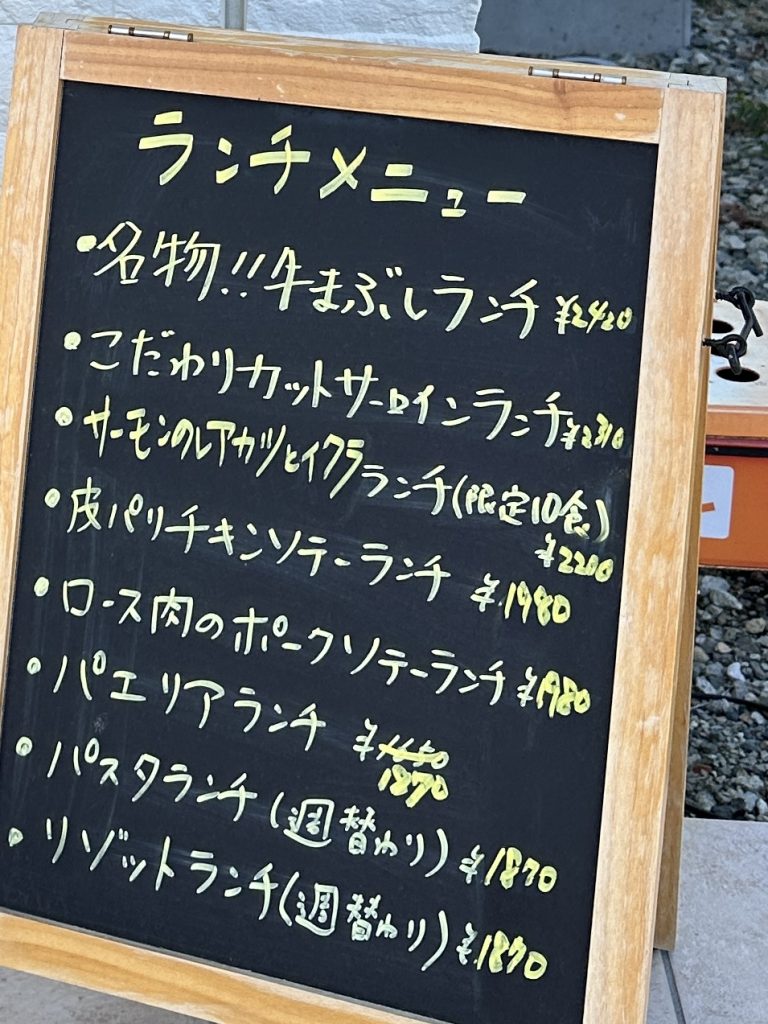 ランチメニュー
・名物!!牛まぶしランチ ¥2420
・こだわりカットサーロインランチ ¥2310
・サーモンのレアカツとイクラランチ(限定10食)
¥2200
・皮パリチキンソテーランチ ¥1980
・ロース肉のポークソテーランチ ¥1980
・パエリアランチ ¥1650
1870
・パスタランチ(週替わり) ¥1870
・リゾットランチ(週替わり) ¥1870